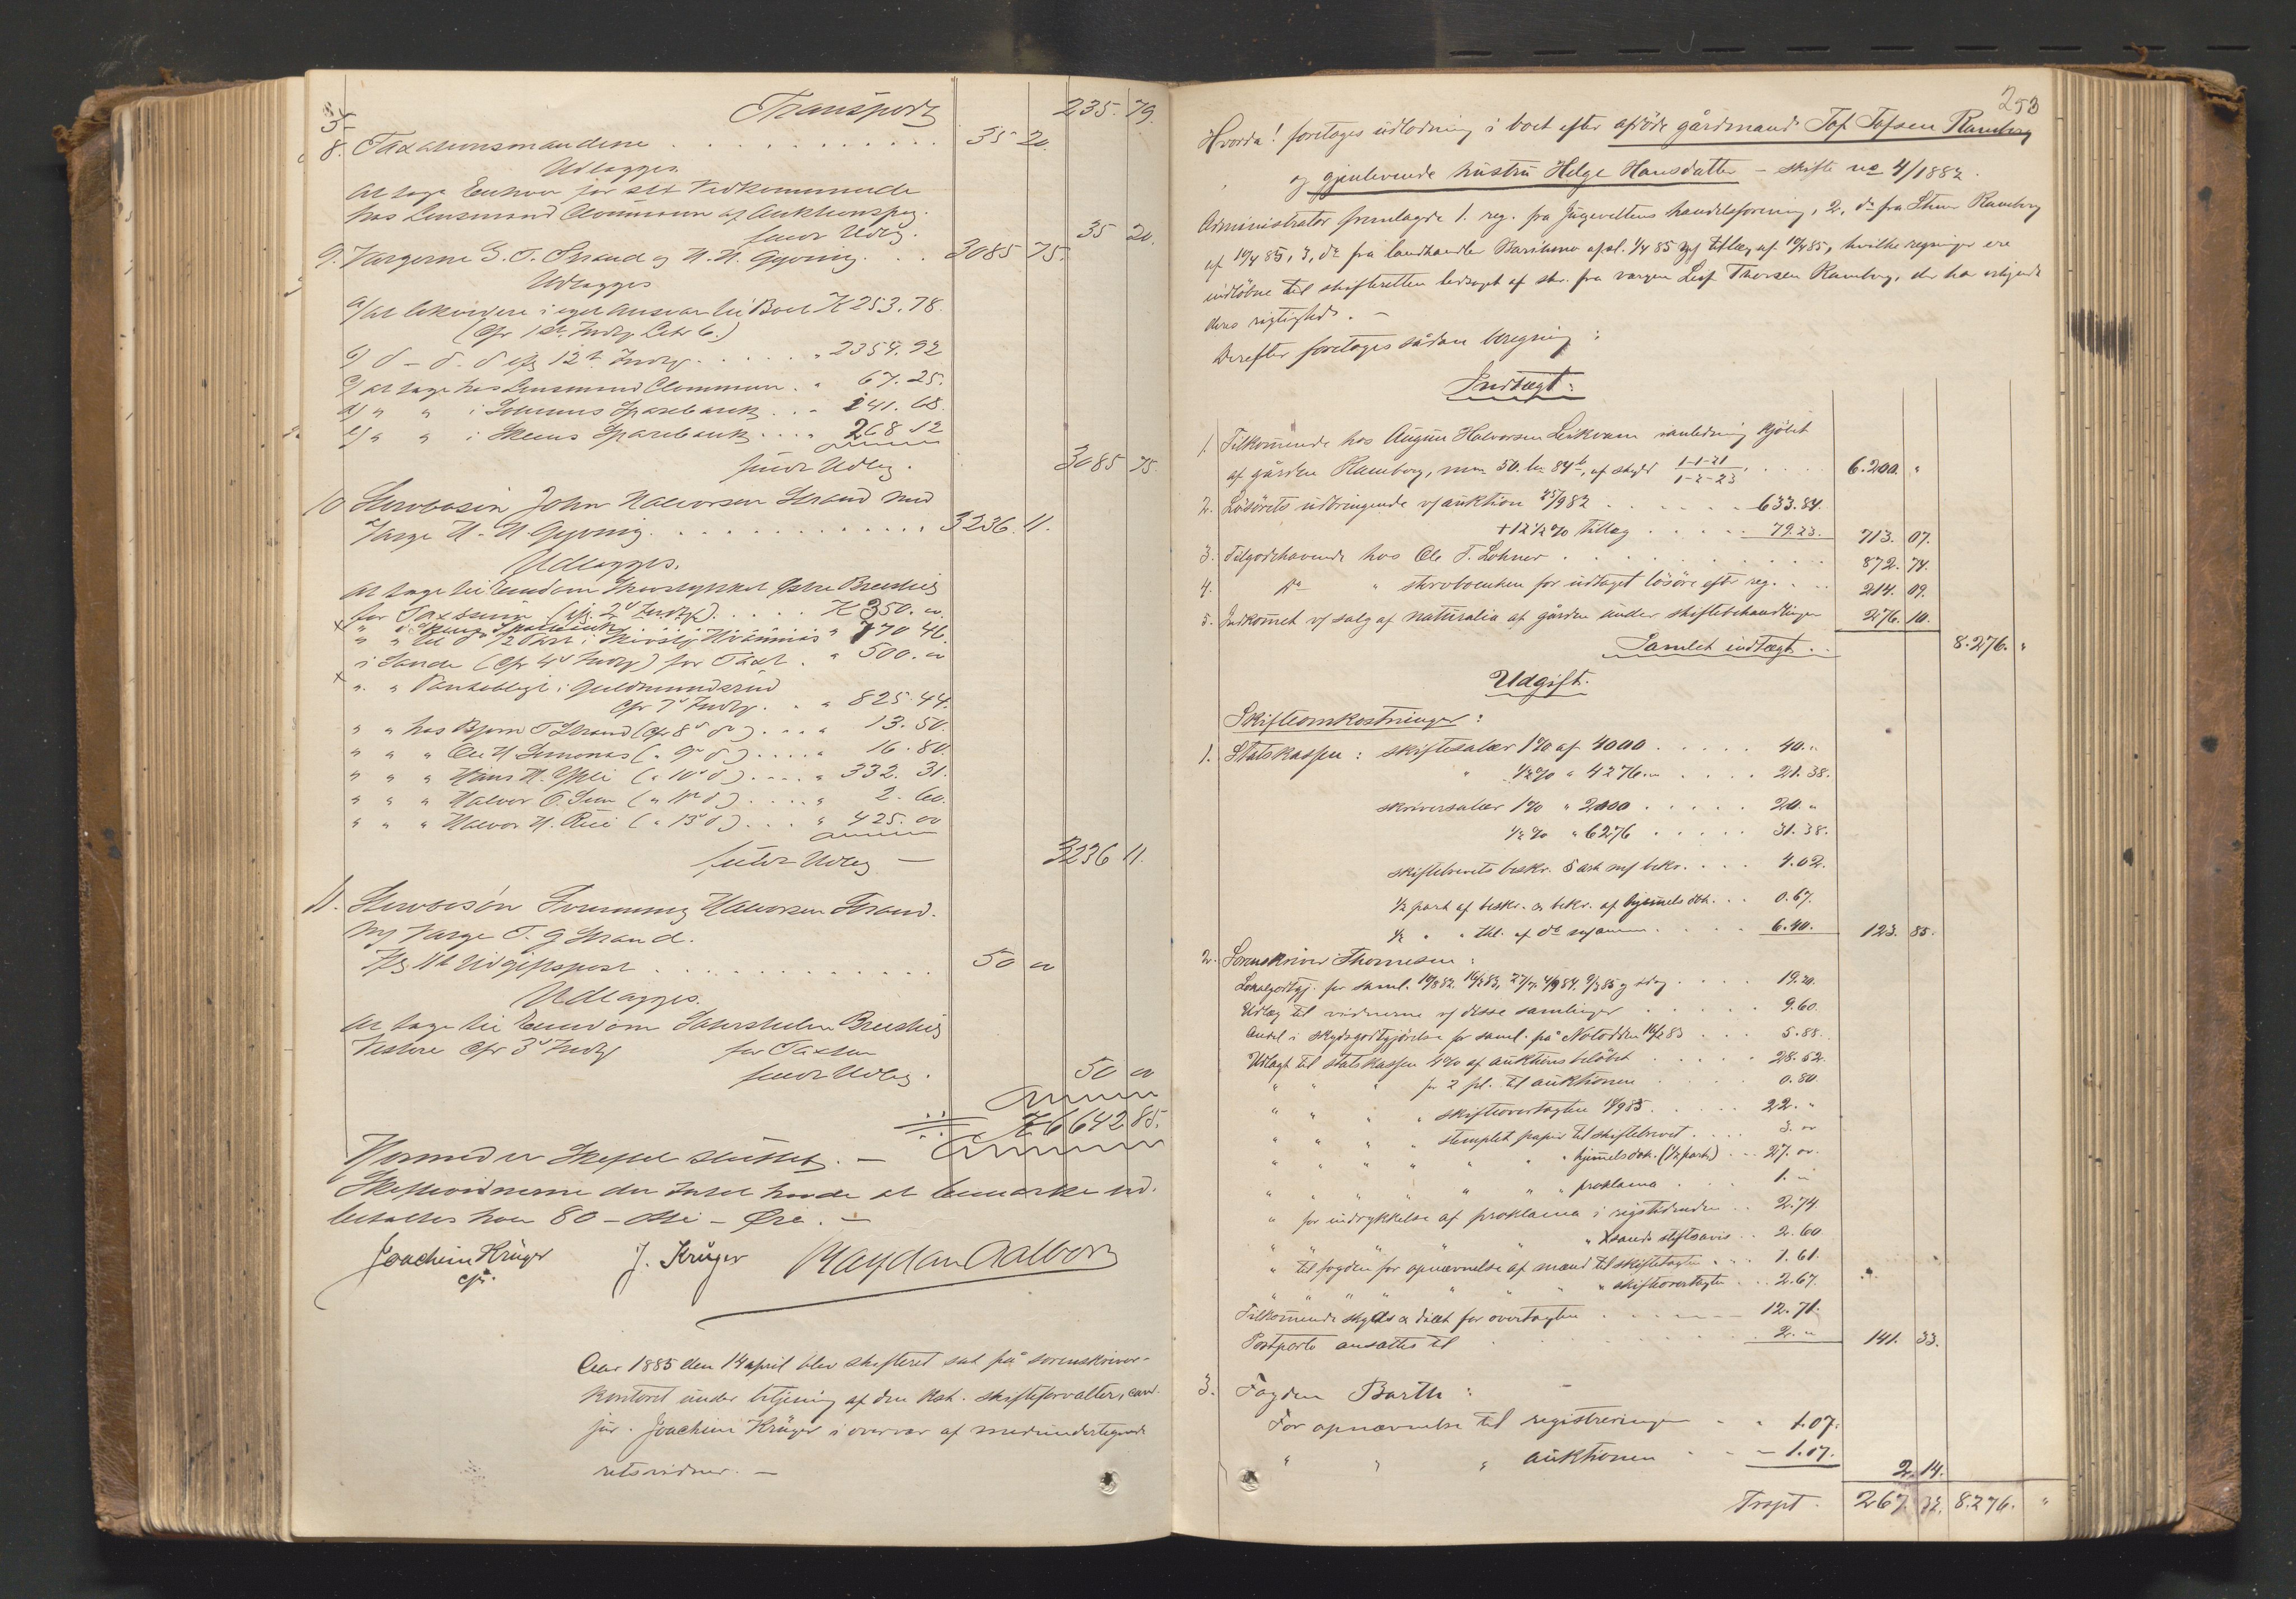 Transport 235. 79.
8. Taxationsmændene . . . . . 35 20.
Udlægges
at tage Enhver for sit Vedkommende
hos Lensmand Clommesen af Auktionspg.
35 20.
9. Værgerne G. T. Strand og H. H. Gjoving . . 3085 75.
Udlægges
a/ at likvidere i eget Ansvar til Boet K 253. 78.
b) d - d. d cfr 12te Indtg. . . . . " 2354. 92
c/ at tage hos Lensmand Clommesen . " 67. 25.
d/ " " i Sparebank . . . 141. 68.
e/ " " i Skiens Sparebank . . . 268 12
3085 75.
10 Stervbosøn John Halvorsen Strand med
Værge H. H. Gjoving . . . . . . 3236. 11.
Udlægges.
for Taxtsum (cfr. 2d Indtg) . . . . K 350. "
770 46.
i Sande (cfr 4d Indtg) for Taxt . " 500. "
" " Panteobligt i Guldmundsrud
cfr 7d Indtg. . . " 825. 44.
" " hos Bjørn T Strand (cfr 8d d) . . . " 13. 50.
" " " Ole H Simonæs (" 9d d) . . . . " 16. 80.
" " " Hans H. (" 10d d) . . . . " 332. 31.
" " " Halvor O. (" 11d d) . . . . " 2. 60.
" " " Halvor H. (" 13d d) . . . " 425. 00
3236 11.
11. Stervbosøn Halvorsen Strand.
m/ Værge T. G Strand.
Ifg 11te Udgiftspost . . . . . . . 50 "
Udlægges.
at tage til Eiendom
Vestere cfr 3d Indtg for Taxten
50 "
K 6642 85.
Hermed er Skiftet sluttet. —
Skiftevidnerne der Intet havde at bemærke ud-
betaltes hver 80 - otti - Øre. —
Joachim Krüger J. Krüger
cst.
Aar 1885 den 14 april blev skifteret sat på sorenskriver-
kontoret under betjening af den kst. skifteforvalter, cand.
jur. Joachim Krüger i overvær af medundertegnede
retsvidner. —
253
Hvorda! foretages udlodning i boet efter afdöde gårdmand Tof Tofsen Ramberg
og gjenlevende hustru Helge Hansdatter – skifte no 4/1882.
Administrator fremlagde 1. reg. fra handelsforening, 2, do fra Ramberg
af 10/4 85, 3, do fra landhandler afsl. 1/4 85 m/ tillæg af 10/4 85, hvilke regninger ere
indlöbne til skifteretten ledsaget af skr. fra værgen Leif Thorsen Ramberg, der har erkjendt
deres rigtighed. —
Derefter foretages sådan beregning :
Indtægt:
1. Tilkommende hos Augun Halvorsen Leikvam i anledning kjöbet
af gården Ramberg, mno 50. lno 84b, af skyld 1-1-21 / 1-2-23 . . . . 6.200. "
2. Lösörets udbringende v/ auktion 25/9 82 . . . . . . 633.84.
+ 12 1/2 % tillæg . . . . 79.23. 713. 07.
3. Tilgodehavende hos Ole T. Lohner . . . . . . . 872. 74.
4. do " stervboenken for udtaget lösöre efter reg. . . . 214. 09.
5. Indkommet v/ salg af naturalia af gården under skiftebehandlingen 276. 10.
Samlet indtægt . . 8.276. "
Udgift.
Skifteomkostninger :
1. Statskassen : skiftesalær 1% af 4000 . . . . . 40. "
" 1/2% " 4276. " . . . . 21. 38.
skriversalær 1% " 2000 . . . . . 20. "
1/2 % " 6276 . . . . . 31. 38.
skiftebrevets beskr. 5 ark m/ bekr. . . . . 4.02.
1/2 part af beskr. & bekr. af hjemmelsdok. . . 0.67.
1/2 " " thl. af do . . . . . 6.40. 123. 85.
2. Sorenskriver Thomesen :
Lokalgodtgj. for saml. . . . . 19.20.
Udlæg til vidnerne v/ disse samlinger . . . . . 9.60.
Andel i skydsgodtgjörelse for saml. på Notodden 16/2 83 . . . 5.88.
Udlagt til statskassen 4% af auktionsbelöbet . . . . . 28.52.
" " " for 2 pl. til auktionen . . . . 0.80.
" " " " skifteovertagten 18/9 83 . . . . . 22. "
" " " " stemplet papir til skiftebrevet . . . . 3. "
" " " " " " hjemmelsdok. (1/2 part) . . 27. "
" " " " " " proklama . . . . 1. "
" for indrykkelse af proklama i rigstidenden . . 2.74.
" " " " " Xsands stiftsavis . . 2.60.
" til fogden for opnævnelse af mænd til skiftetagten . . . 1.61.
" " " " " " " skifteovertagten . . . 2.67.
Tilkommende skyds & diæt for overtagten . . . . 12.71.
Postporto ansættes til . . . . . . 2. " 141. 33.
3. Fogden Barth :
For opnævnelse til registreringen . . 1.07.
" " " auktionen . . . 1.07. 2. 14.
Trspt. 267. 32. 8.276. "